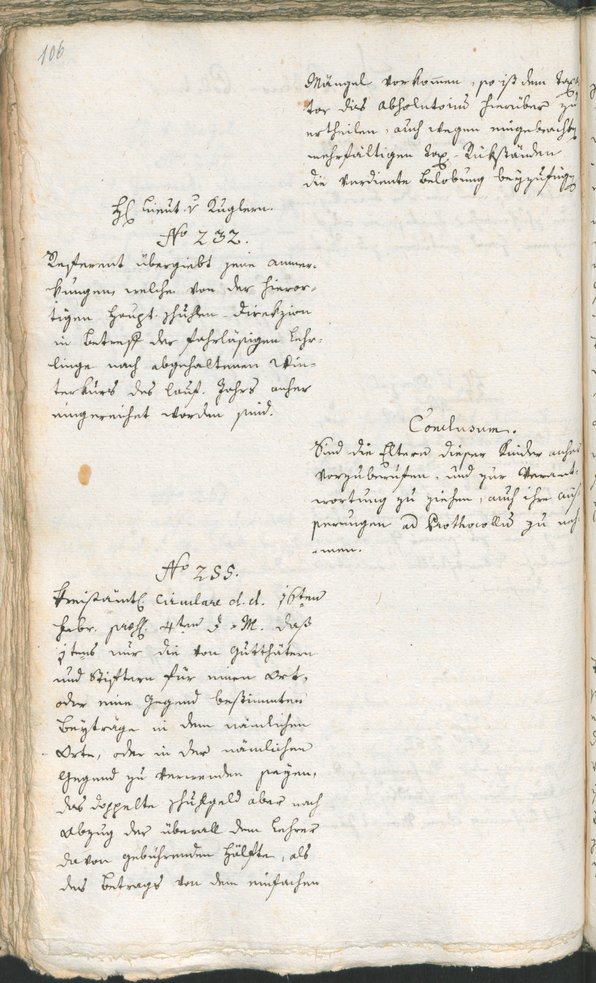 106
Mängel vorkommen, so ist dem Tax¬
tor das Absolutorium hierüber zu
ertheilen, auch wegen eingebracht
mehrfältigen Tax-Rükständen
die verdiente Belobung beyzufügen
H. Lieut. v Kuglern.
No 232.
Referent übergiebt jene anmer¬
kungen, welche von der hieror¬
tigen Haupt-schullen-Direkzion
in Betreff der fahrläßigen Lehr¬
linge nach abgehaltenen Win¬
terkurs des lauf. Jahrs anher
eingereichet worden sind.
Conclusum.
Sind die Eltern dieser Kinder anher
vorzuberufen, und zur Verant¬
wortung zu ziehen, auch ihre aus
serungen ad Prothocollũ zu neh
men.
No 255.
Kreisämtl. Circulare d. d. 16ten
Febr. præs. 4ten d. M. daß
1tens nur die von Gutthätern
und Stiftern für einen Ort,
oder eine Gegend bestimmten
Beyträge in dem nämlichen
Orte, oder in der nämlichen
Gegend zu verwenden seyen,
das doppelte schulgeld aber nach
abzug der überall dem Lehrer
davon gebührenden Hälfte, als
des Betrags von dem einfachen